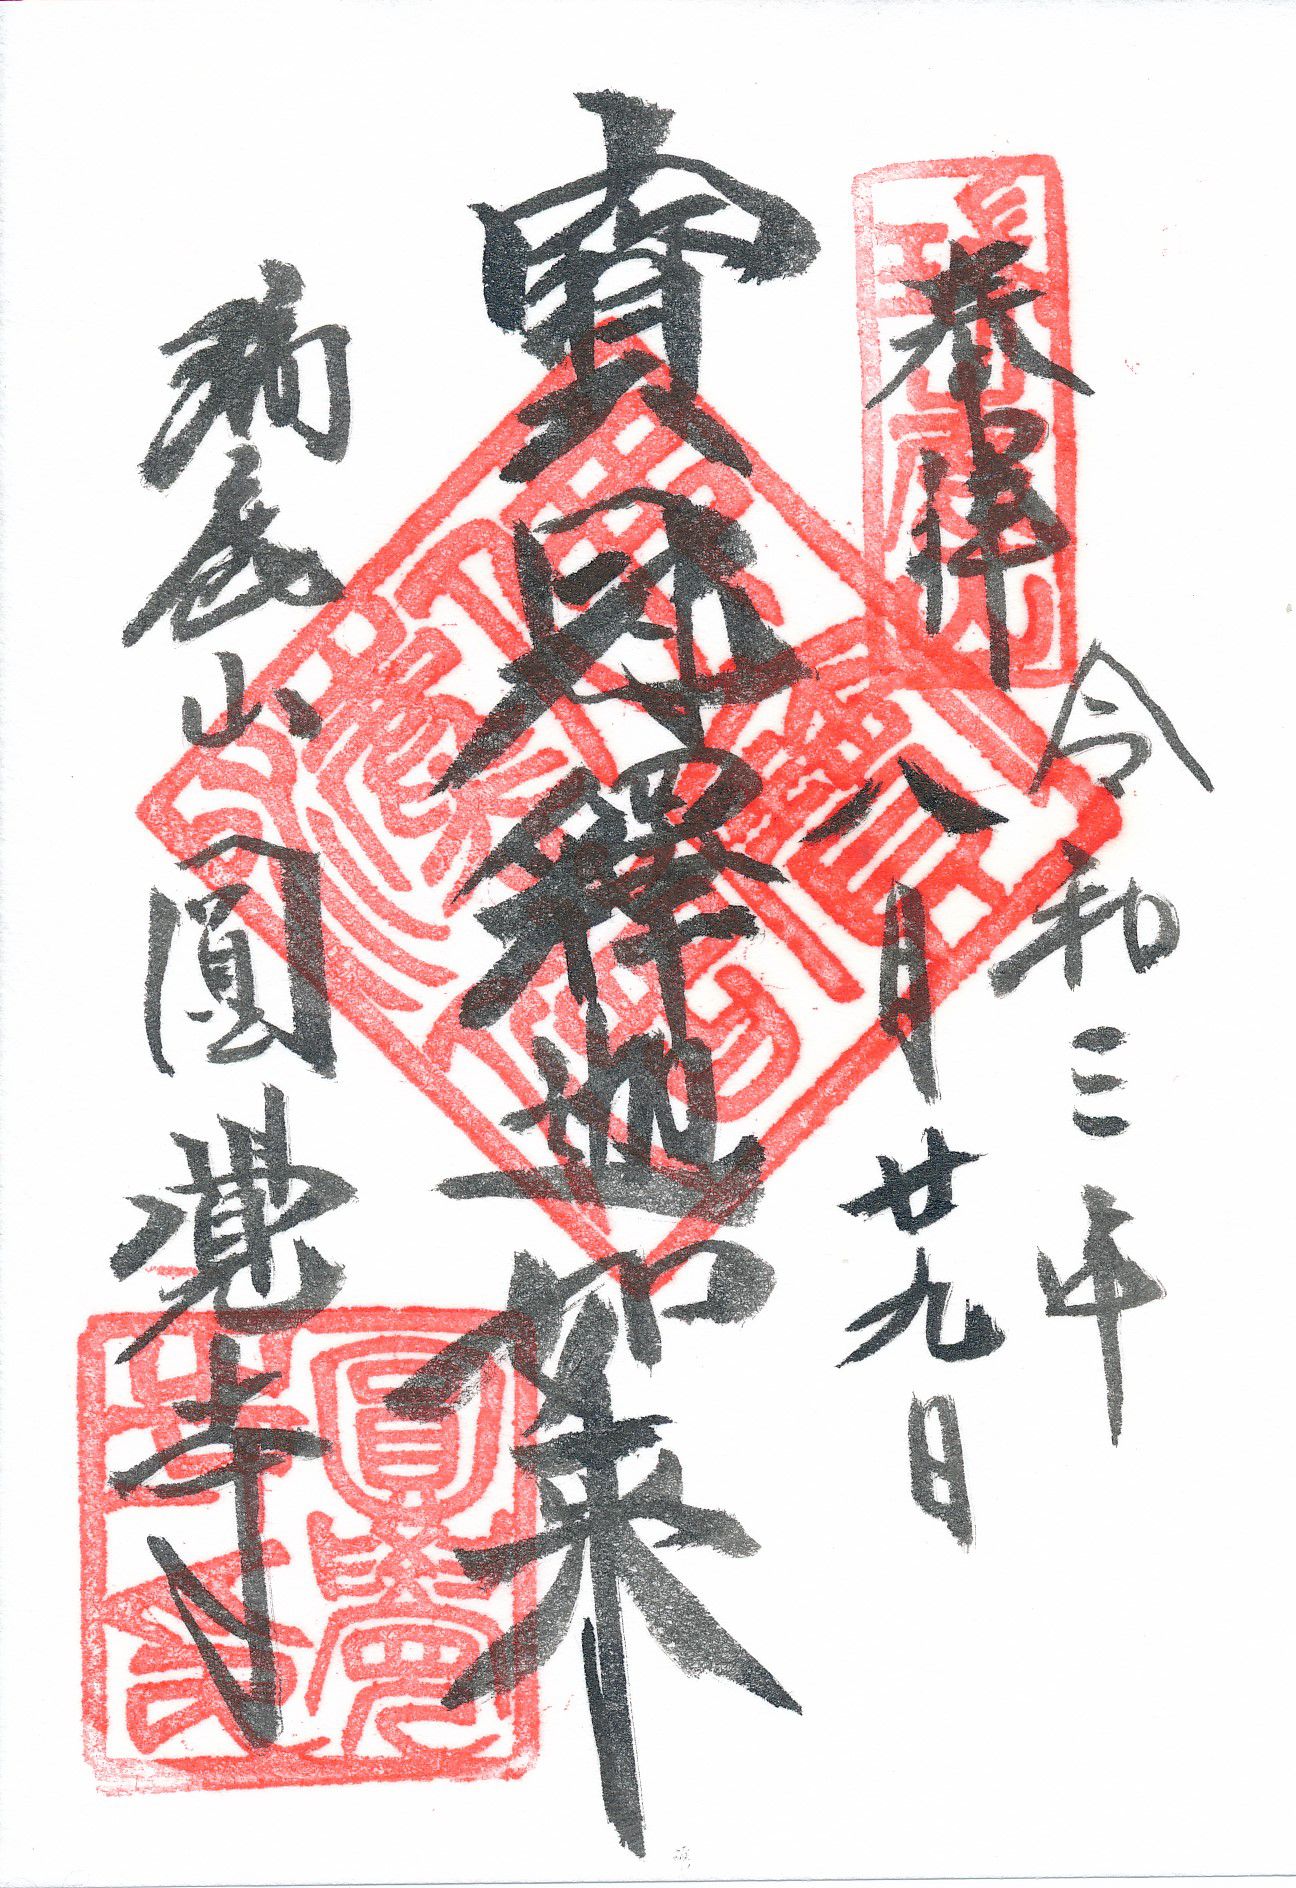 奉拝
令和三年
八月廿九日
寶冠釋迦如来
瑞鹿山圓覺寺